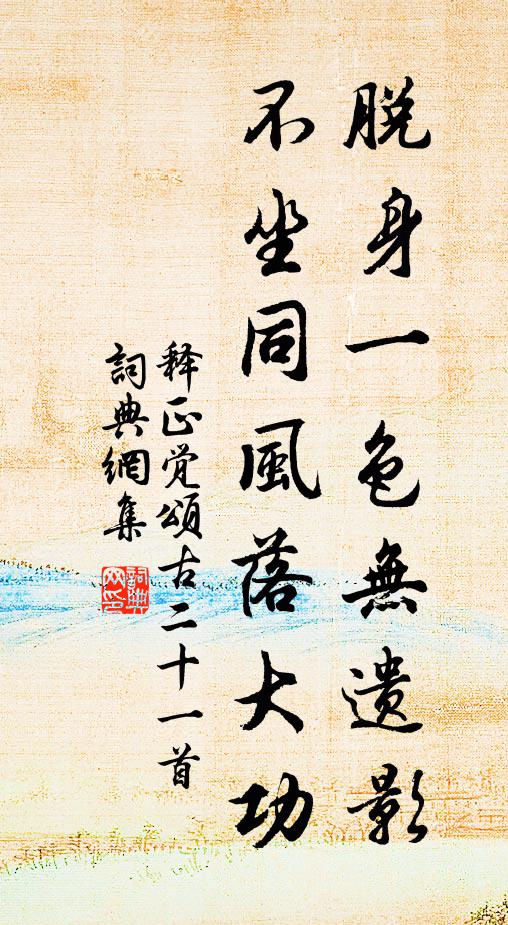 脫身一色無遺影
不坐同風落大功
释正觉頌古二十一首
詞典網集